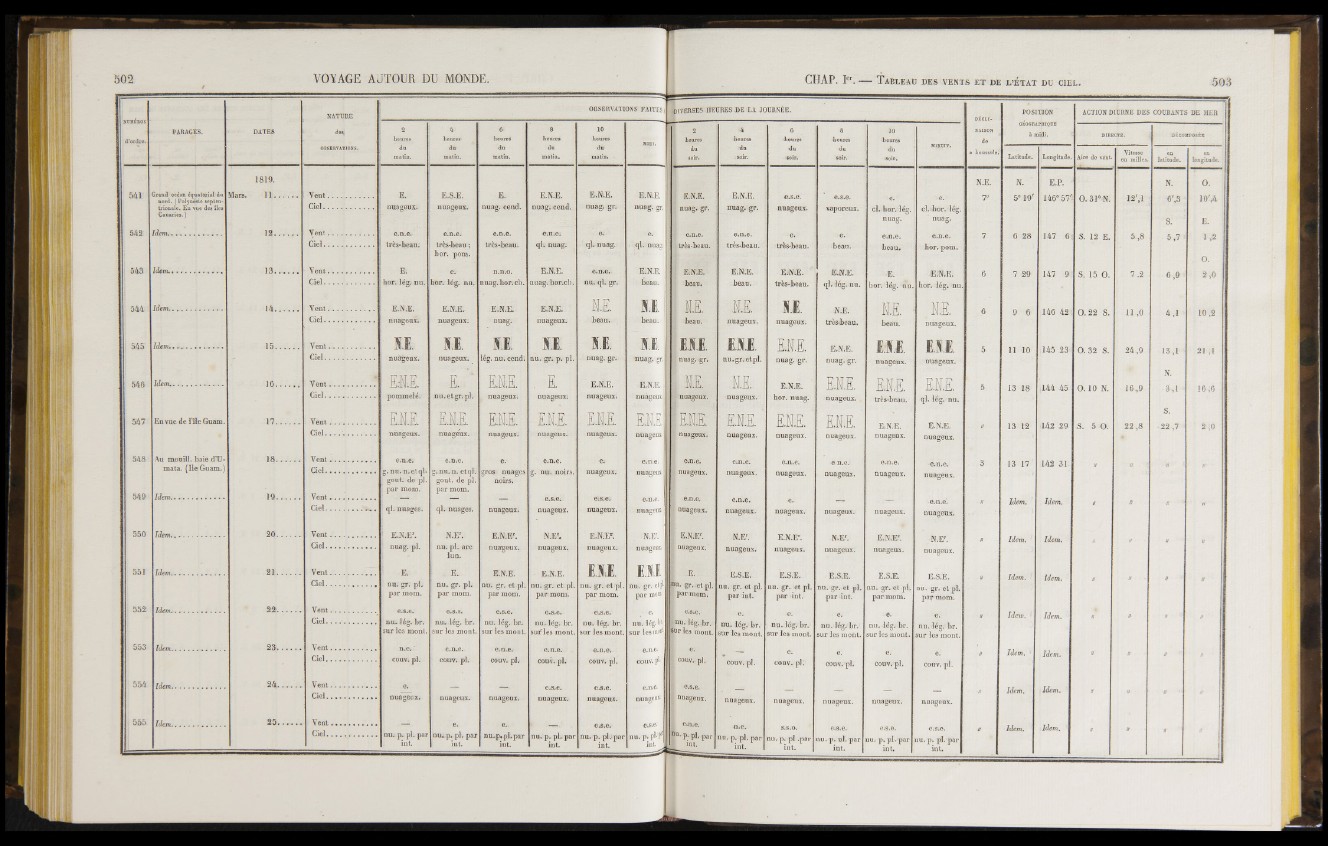 502 VOYAGE AUTOUR DU MONDE.
NUMÉROS d'ordre. PARAGES. DATES NATURE des OBSERVATIONS. OBSERVATIONS FAITES
2 heures du matin. 4 heures du matin. 6 heures du matin. 8 heures du matin. 10 heures du matin. MIDI.
1819.
541 Grand océan équatorial du nord. (Polynésie septentrionale. En vue des îles Carolines.) Mars. 11...... Vent............ E. E.S.E. E. E.N.E. E.N.E. E.N.E.
Ciel............ nuageux. nuageux. nuag. cend. nuag. cend. nuag. gr. nuag. gr.
542 Idem.............. 12...... Vent............ e.n.e. e.n.e. e.n.e. e.n.e. e. e.
Ciel............ très-beau. très-beau; hor. pom. très-beau. ql. nuag. ql. nuag. ql. nuag.
543 Idem.............. 13...... Vent............ E. e. n.n.e. E.N.E. e.n.e. E.N.E.
Ciel............ hor. lég. nu. hor. lég. nu. nuag. hor. ch. nuag. hor. ch. nu. ql. gr. beau.
544 Idem.............. 14...... Vent............ E.N.E. E.N.E. E.N.E. E.N.E. N.E. N.E.
Ciel............ nuageux. nuageux. nuag. nuageux. beau. beau.
545 Idem.............. 15...... Vent............ N.E. N.E. N.E. N.E. N.E. N.E.
Ciel............ nuageux. nuageux. lég. nu. cend. nu. gr. p. pl. nuag. gr. nuag. gr.
546 Idem.............. 16...... Vent............ E.N.E. E. E.N.E. E. E.N.E. E.N.E.
Ciel............ pommelé. nu. et gr. pl. nuageux. nuageux. nuageux. nuageux.
547 En vue de l'île Guam. 17...... Vent............ E.N.E. E.N.E. E.N.E. E.N.E. E.N.E. E.N.E.
Ciel............ nuageux. nuageux. nuageux. nuageux. nuageux. nuageux
548 Au mouill. baie d'Umata. (Ile Guam.) 18...... Vent............ e.n.e. e.n.e. e. e.n.e. e. e.n.e.
Ciel............ g. nu. n. et ql. gout. de pl. par mom. g. nu. n. et ql. gout. de pl. par mom. gros nuages noirs. g. nu. noirs. nuageux. nuageux
549 Idem.............. 19...... Vent............ — — — e.s.e. e.s.e. e.n.e.
Ciel............ ql. nuages. ql. nuages. nuageux. nuageux. nuageux. nuageux
550 Idem.............. 20...... Vent............ E.N.E'. N.E'. E.N.E'. N.E'. E.N.E'. N.E'.
Ciel............ nuag. pl. nu. pl. arc lun. nuageux. nuageux. nuageux. nuageux
551 Idem.............. 21...... Vent............ E. E. E.N.E. E.N.E. E.N.E. E.N.E.
Ciel............ nu. gr. pl. par mom. nu. gr. pl. par mom. nu. gr. et pl. par mom. nu. gr. et pl. par mom. nu. gr. et pl. par mom. nu. gr. et pl. par mom
552 Idem.............. 22...... Vent............ e.s.e. e.s.e. e.s.e. e.s.e. e.s.e. e.
Ciel............ nu. lég. br. sur les mont. nu. lég. br. sur les mont. nu. lég. br. sur les mont. nu. lég. br. sur les mont. nu. lég. br. sur les mont. nu. lég. br. sur les mont
553 Idem.............. 23...... Vent............ n.e. e.n.e. e.n.e. e.n.e. e.n.e. e.n.e.
Ciel............ couv. pl. couv. pl. couv. pl. couv. pl. couv. pl. couv. pl.
554 Idem.............. 24...... Vent............ e. — — e.s.e. e.s.e. e.n.e.
Ciel............ nuageux. nuageux. nuageux. nuageux. nuageux. nuageux
555 Idem.............. 25...... Vent............ — e. e. — e.s.e. e.s.e.
Ciel............ nu. p. pl. par int. nu. p. pl. par int. nu. p. pl. par int. nu. p. pl. par int. nu. p. pl. par int. nu. p. pl. par int.
CHAP. Ier. — TABLEAU DES VENTS ET DE L'ÉTAT DU CIEL. 503
DIVERSES HEURES DE LA JOURNÉE. DÉCLINAISON de POSITION GÉOGRAPHIQUE à midi. ACTION DIURNE DES COURANTS DE MER
2 heures du soir. 4 heures du soir. 6 heures du soir. 8 heures du soir. 10 heures du soir. MINUIT. Latitude. Longitude. Aire de vent. Vitesse en milles. en latitude. en longitude.
N.E. N. E.P. N. O.
E.N.E. E.N.E. e.s.e. e.s.e. e. e. 7° 5° 19' 146° 57' O. 31° N. 12',1 6',5 10',4
nuag. gr. nuag. gr. nuageux. vaporeux. cl. hor. lég. nuag. cl. hor. lég. nuag.
S. E.
e.n.e. e.n.e. e. e. e.n.e. e.n.e. 7 6 28 147 6 S. 12 E. 5,8 5,7 1,2
très-beau. très-beau. très-beau. beau. beau. hor. pom.
O.
E.N.E. E.N.E. E.N.E. E.N.E. E. E.N.E. 6 7 29 147 9 S. 15 O. 7,2 6,9 2,0
beau. beau. très-beau. ql. lég. nu. hor. lég. nu. hor. lég. nu.
N.E. N.E. N.E. N.E. N.E. N.E. 6 9 6 146 42 O. 22 S. 11,0 4,1 10,2
beau. nuageux. nuageux. très-beau. beau. nuageux.
E.N.E. E.N.E. E.N.E. E.N.E. E.N.E. E.N.E. 5 11 10 145 23 O. 32 S. 24,9 13,1 21,1
nuag. gr. nu. gr. et pl. nuag. gr. nuag. gr. nuageux. nuageux.
N.
N.E. N.E. E.N.E. E.N.E. E.N.E. E.N.E. 5 13 18 144 45 O. 10 N. 16,9 3,1 16,6
nuageux. nuageux. hor. nuag. nuageux. très-beau. ql. lég. nu.
S.
E.N.E. E.N.E. E.N.E. E.N.E. E.N.E. E.N.E. " 13 12 142 29 S. 5 O. 22,8 22,7 2,0
nuageux. nuageux. nuageux. nuageux. nuageux. nuageux.
e.n.e. e.n.e. e.n.e. e.n.e. e.n.e. e.n.e. 3 13 17 142 31 " " " "
nuageux. nuageux. nuageux. nuageux. nuageux. nuageux.
e.n.e. e.n.e. e. — — e.n.e. " Idem. Idem. " " " "
nuageux. nuageux. nuageux. nuageux. nuageux. nuageux.
E.N.E'. N.E'. E.N.E'. N.E'. E.N.E'. N.E'. " Idem. Idem. " " " "
nuageux. nuageux. nuageux. nuageux. nuageux. nuageux.
E. E.S.E. E.S.E. E.S.E. E.S.E. E.S.E. " Idem. Idem. " " " "
nu. gr. et pl. par mom. nu. gr. et pl. par int. nu. gr. et pl. par int. nu. gr. et pl. par int. nu. gr. et pl. par mom. nu. gr. et pl. par mom.
e.s.e. e. e. e. e. e. " Idem. Idem. " " " "
nu. lég. br. sur les mont. nu. lég. br. sur les mont. nu. lég. br. sur les mont. nu. lég. br. sur les mont. nu. lég. br. sur les mont. nu. lég. br. sur les mont.
e. — e. e. e. e. " Idem. Idem. " " " "
couv. pl. couv. pl. couv. pl. couv. pl. couv. pl. couv. pl.
e.s.e. — — — — — " Idem. Idem. " " " "
nuageux. nuageux. nuageux. nuageux. nuageux. nuageux.
e.n.e. n.e. e.s.e. e.s.e. e.s.e. e.s.e. " Idem. Idem. " " " "
nu. p. pl. par int. nu. p. pl. par int. nu. p. pl. par int. nu. p. pl. par int. nu. p. pl. par int. nu. p. pl. par int.